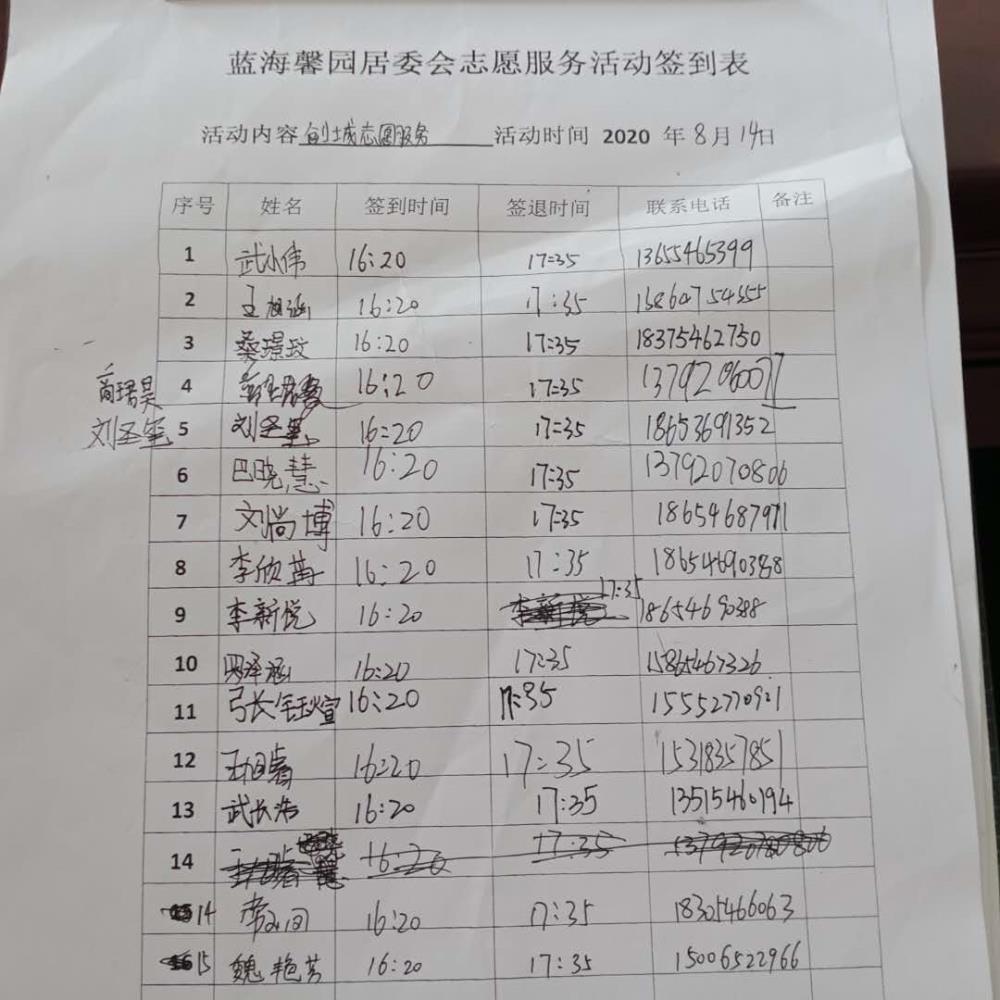 蓝海馨园居委会志愿服务活动签到表
活动内容 创城志愿服务 活动时间 2020 年 8 月 14 日
序号 姓名 签到时间 签退时间 联系电话 备注
1 武小伟 16:20 17:35 13655465399
2 王旭涵 16:20 17:35
3 桑璟玟 16:20 17:35 18375462750
商珺昊 4 16:20 17:35 13792060077
刘圣笔 5 刘圣笔 16:20 17:35 18653691352
6 巴晓慧 16:20 17:35 13792070806
7 刘尚博 16:20 17:35 18654687971
8 李欣苒 16:20 17:35 18654690388
9 李新悦 16:20 李新悦 17:35 18654690388
10 泽涵 16:20 17:35 15865467326
11 16:20 17:35 15552770921
12 16:20 17:35 15318357851
13 武长浩 16:20 17:35 13515460194
14 16:20 17:35 13792070806
14 16:20 17:35 18305466063
15 魏艳芳 16:20 17:35 15006522966